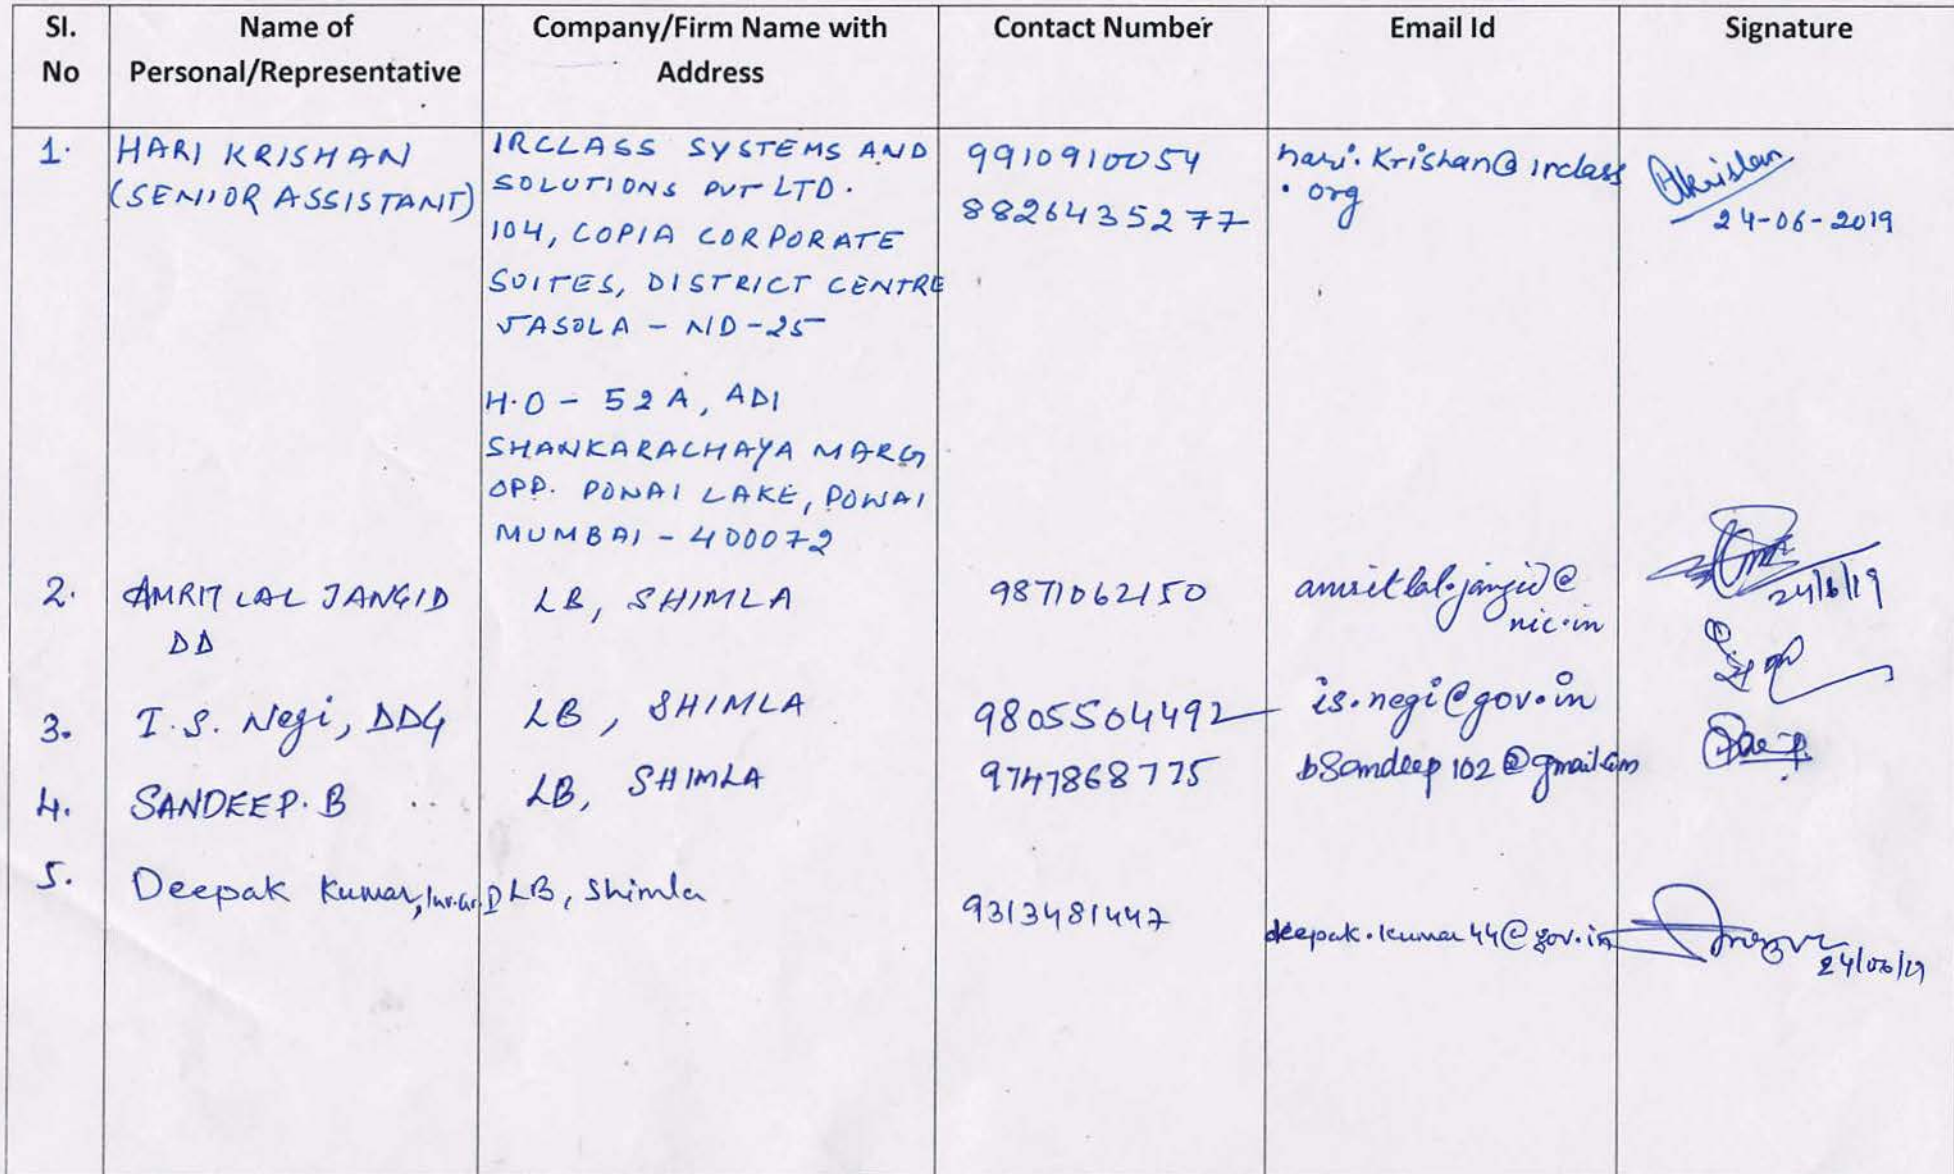 Sl. No
Name of Personal/Representative
Company/Firm Name with Address
Contact Number
Email Id
Signature
1.
HARI KRISHAN
(SENIOR ASSISTANT)
IRCLASS SYSTEMS AND
SOLUTIONS PVT LTD.
104, COPIA CORPORATE
SUITES, DISTRICT CENTRE
JASOLA - ND-25
H.O - 52A, ADI
SHANKARACHAYA MARG
OPP. POWAI LAKE, POWAI
MUMBAI - 400072
9910910054
8826435277
hari.Krishan@irclass
.org
24-06-2019
2.
AMRIT LAL JANGID
DD
LB, SHIMLA
9871062150
amritlal.jangid@
nic.in
24/6/19
3.
I.S. Negi, DDG
LB, SHIMLA
9805504492
is.negi@gov.in
4.
SANDEEP.B
LB, SHIMLA
9747868775
bsandeep102@gmail.com
5.
Deepak Kumar,
LB, Shimla
9313481447
deepak.kumar44@gov.in
24/06/19